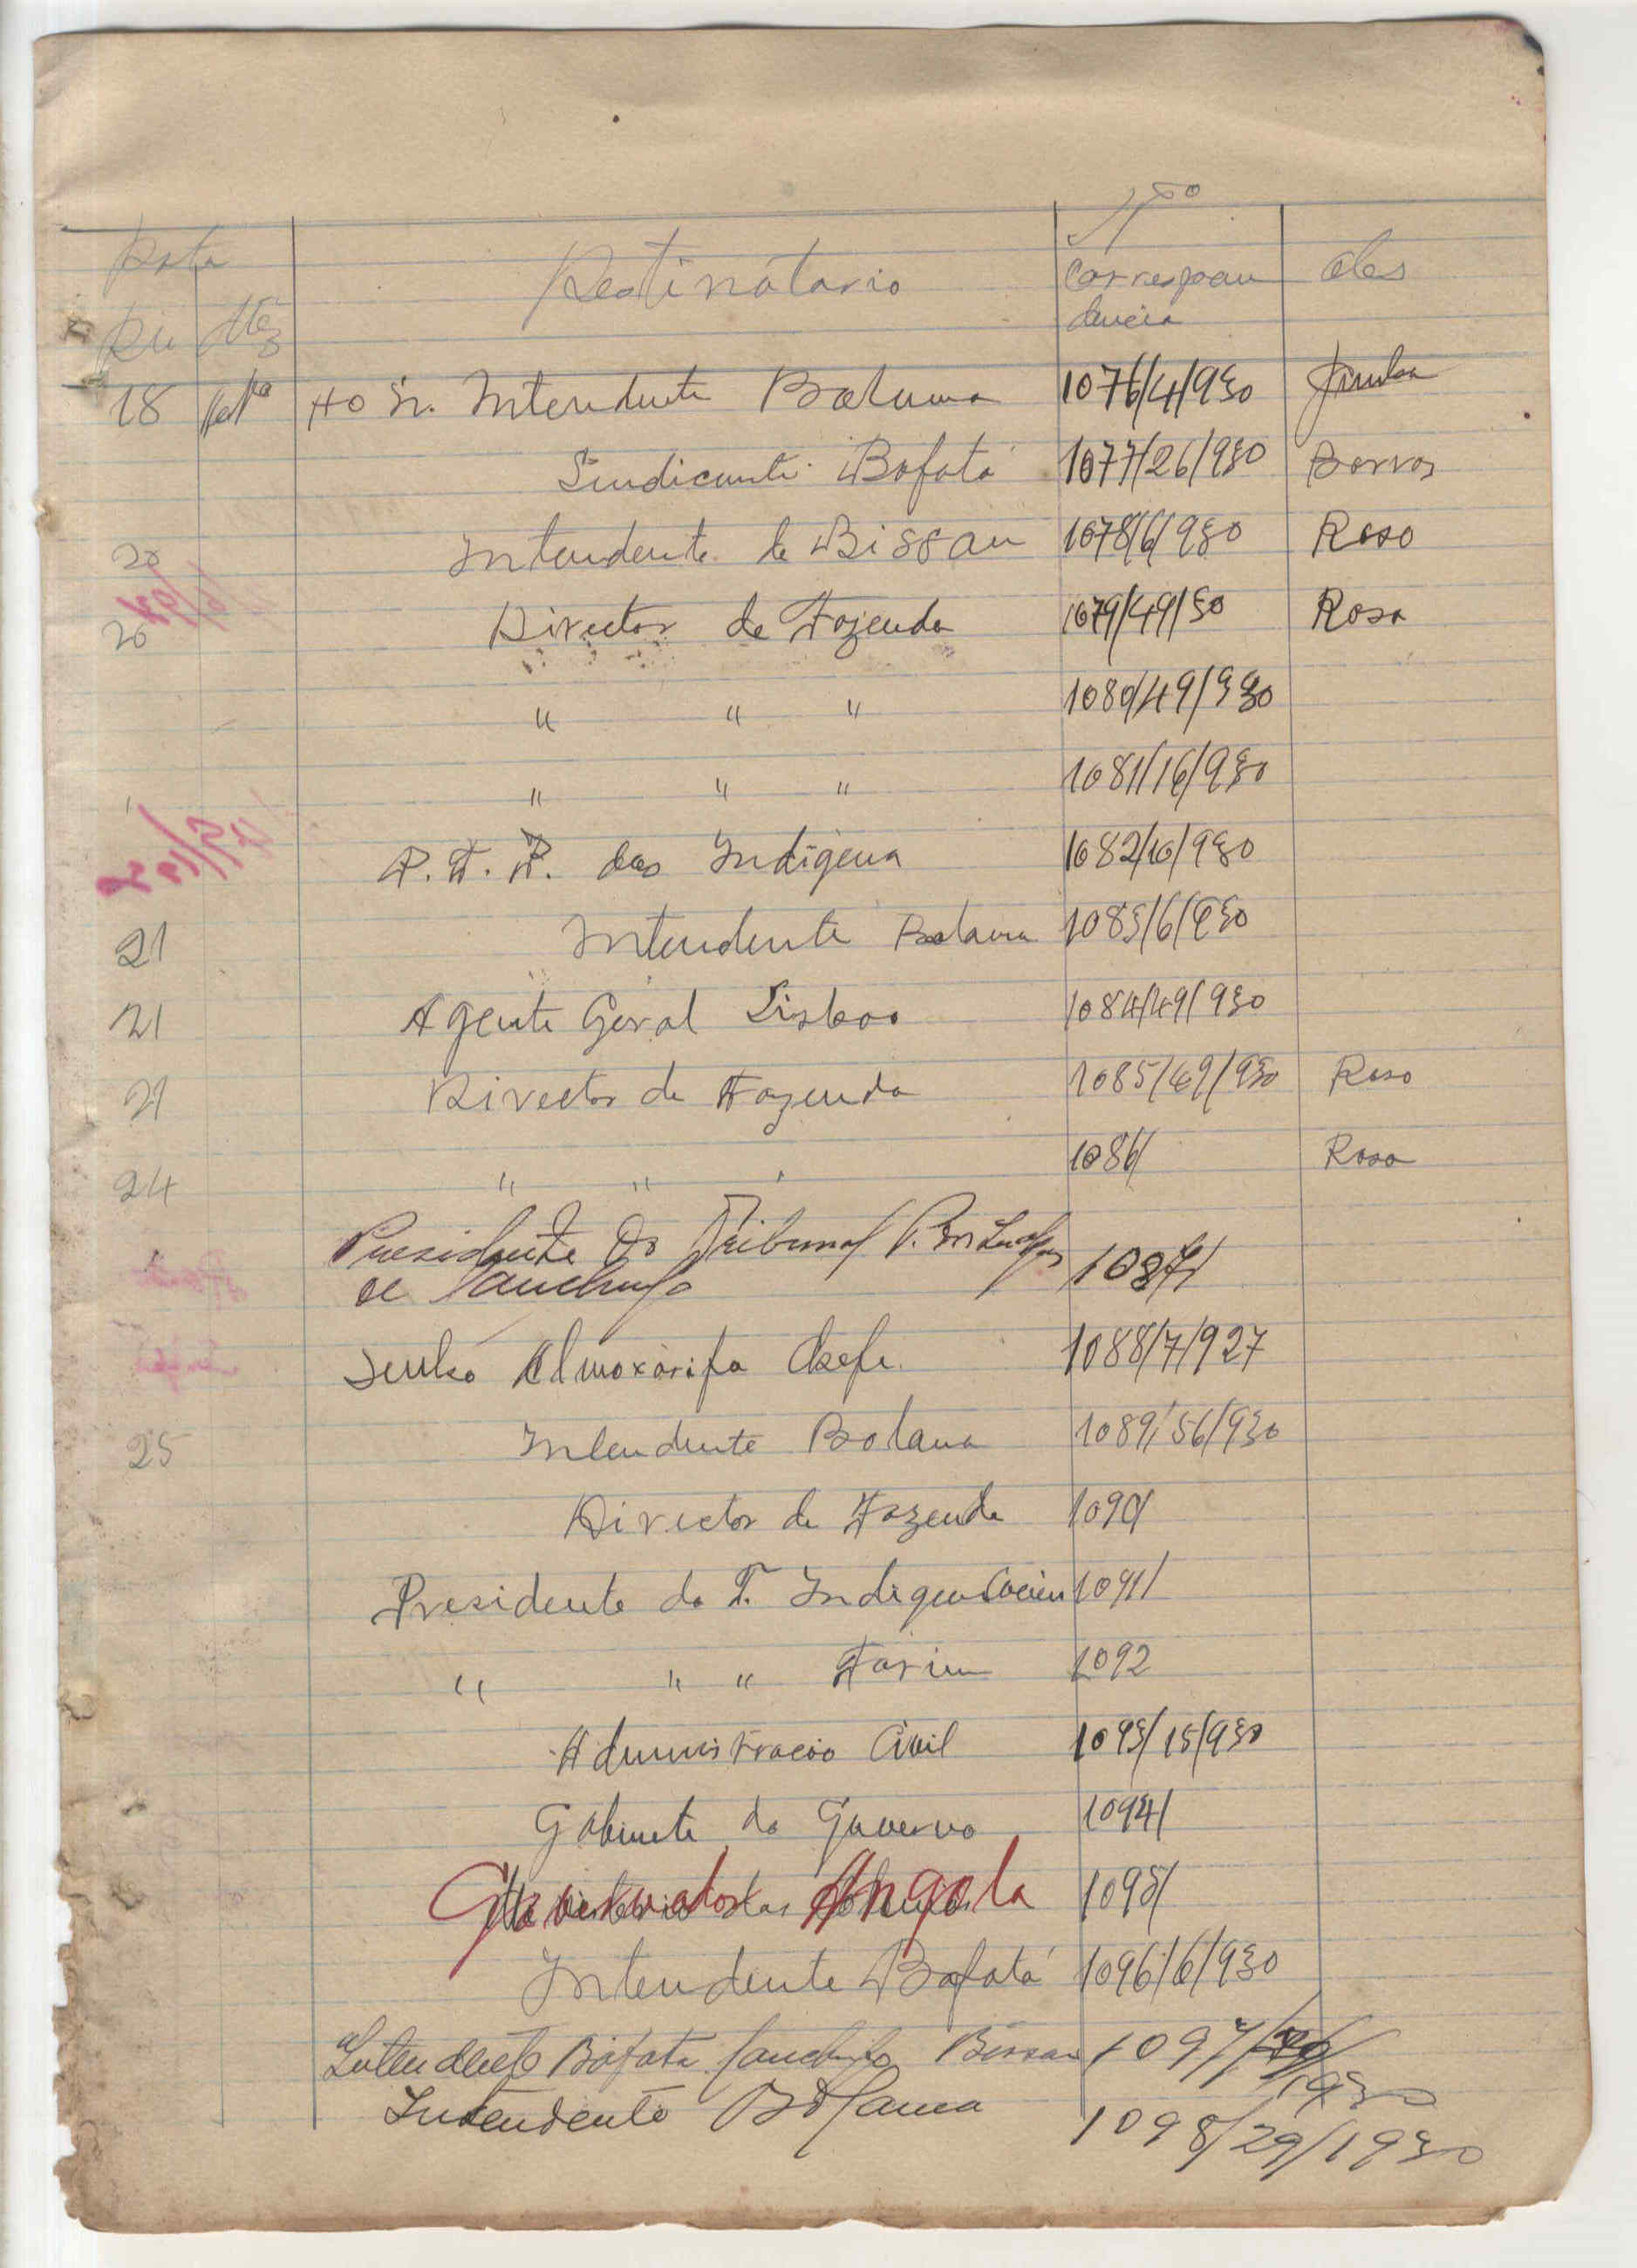 Data Destinatario Nº Correspon Obs
Dia Mez dencia
18 Ao Sr. Intendente Bolama 1076/4/930
Sindicante Bafatá 1077/26/930 Barros
20 Intendente de Bissau 1078/6/930 Rosa
20 Director de Fazenda 1079/49/30 Rosa
" " " 1080/49/930
" " " 1081/16/930
dos Indigena 1082/16/930
21 Intendente Bolama 1083/6/930
21 Agente Geral Lisboa 1084/49/930
21 Director de Fazenda 1085/49/930 Rosa
24 " " " 1086/ Rosa
Presidente do Tribunal P. Indigenas 1087/
de Canchungo
Almoxarife Chefe 1088/7/927
25 Intendente Bolama 1089/56/930
Director de Fazenda 1090/
Presidente do T. Indigena Cacheu 1091/
" " " Farim 1092
Administracão Civil 1093/15/930
Gabinete do Governo 1094/
Governador Angola 1095/
Intendente Bafatá 1096/6/930
Intendente Bafata Canchungo Bissau 1097/
1930
Intendente Bolama 1098/29/1930